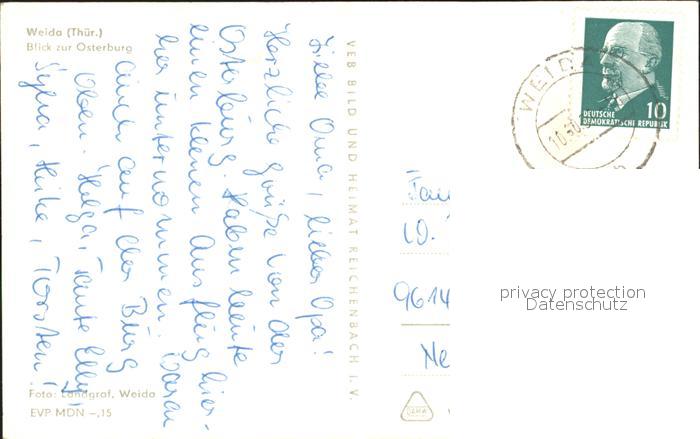 Weida (Thür.)
Blick zur Osterburg
Liebe Oma, lieber Opa!
Herzliche Grüße von der
Osterburg. Haben heute
einen kleinen Ausflug hier-
her unternommen. Waren
auch auf der Burg
oben. Helga, Tante Elly,
Sylva, Heike, Torsten!
Foto: Landgraf, Weida
EVP MDN –,15
VEB BILD UND HEIMAT REICHENBACH I. V.
WEIDA
10
DEUTSCHE
DEMOKRATISCHE REPUBLIK
Fam
10.
9614
Ne
privacy protection
Datenschutz